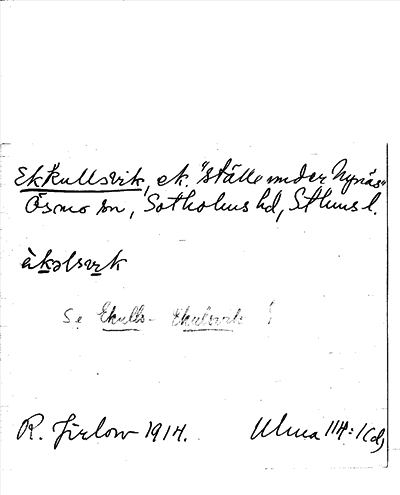 Ekkullsvik, ek. "ställe under Nynäs"
Ösmo sn, Sotholms hd, Sthms l.
àkəlsvɩk
Se Ekulls- Ekulsvik
R. Jirlow 1914.
Ulma 114:1(d)